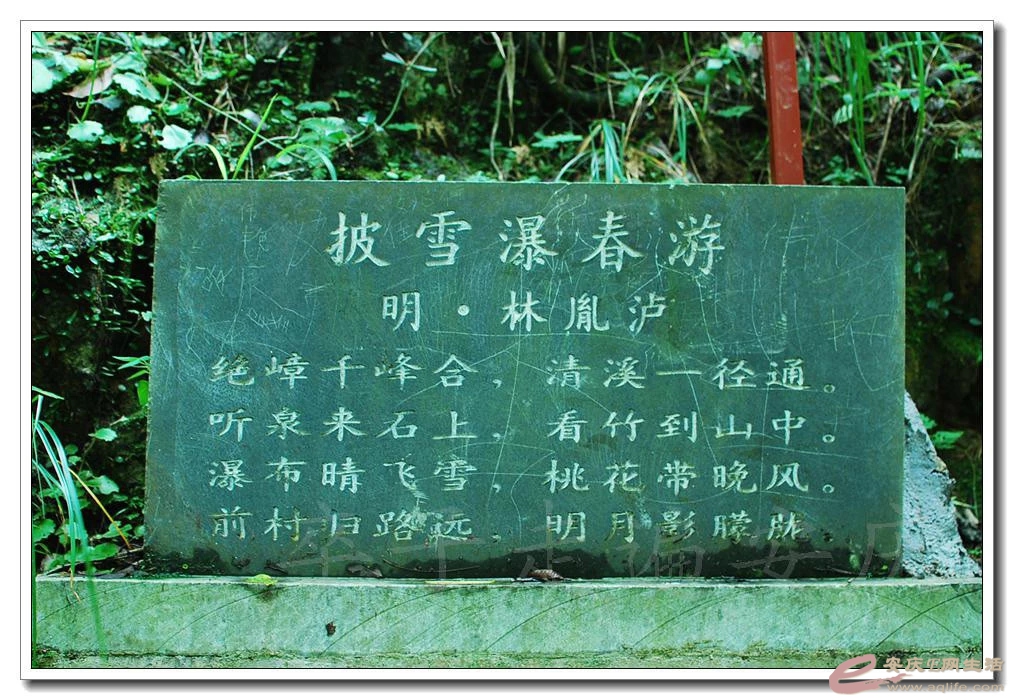 披雪瀑春游
明·林胤泸
绝嶂千峰合，清溪一径通。
听泉来石上，看竹到山中。
瀑布晴飞雪，桃花带晚风。
前村归路远，明月影朦胧
安庆E网生活
www.aqlife.com